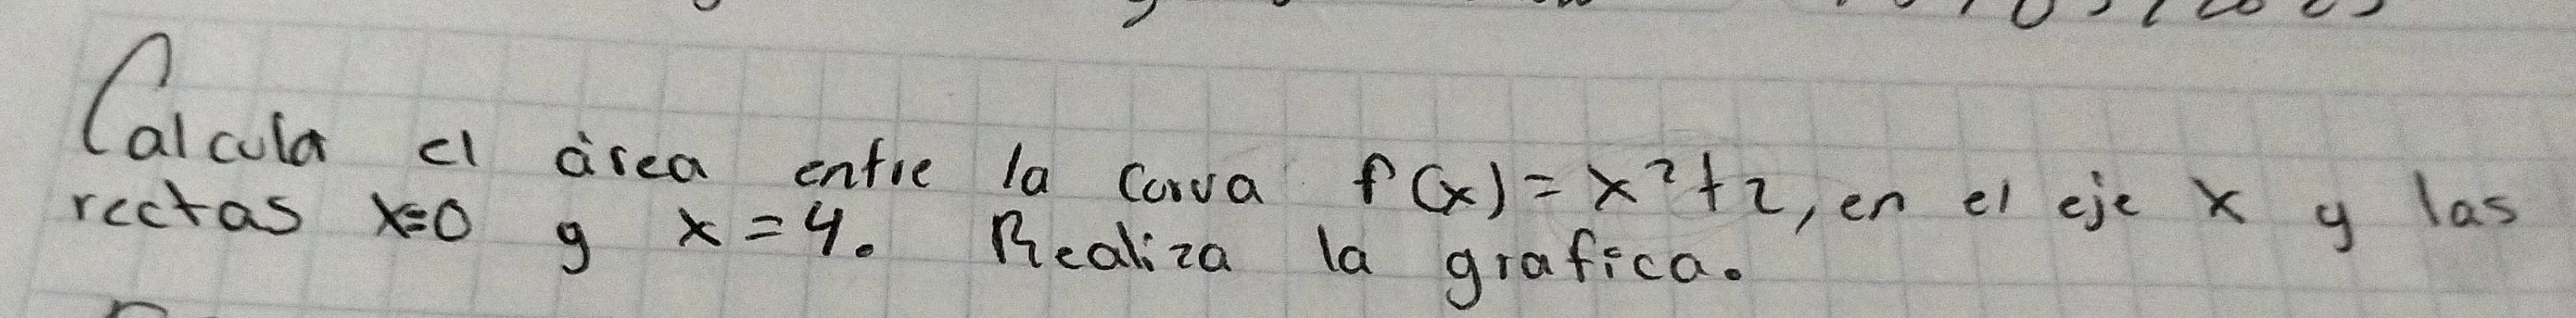 Calcula el área entre la curva f(x)=x²+2, en el eje x y las
rectas x=0 y x=4. Realiza la grafica.